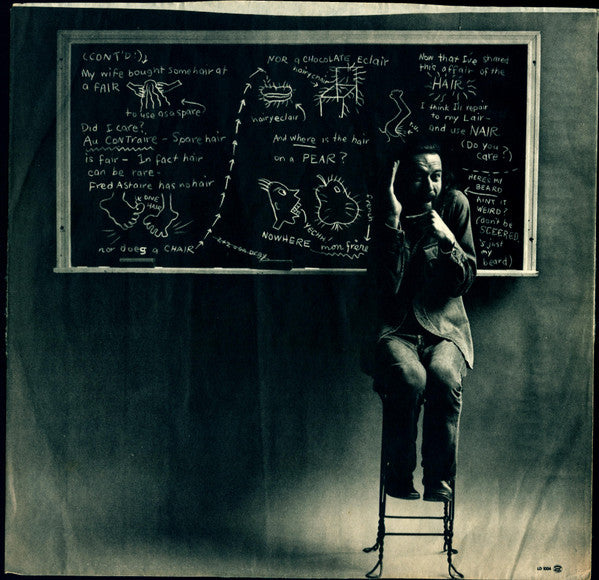 (CONT'D:)
My wife bought some hair at
a FAIR
to use as a spare
Did I care?
Au CONTRAIRE - Spare hair
is fair - In fact hair
can be rare -
Fred Astaire has no hair
nor does a CHAIR
NOR a CHOCOLATE Eclair
hairy chair
hairy eclair
And where is the hair
on a PEAR?
NOWHERE
mon frere
Now that I've shared
this affair of the
HAIR
I think I'll repair
to my Lair -
and use NAIR
(Do you
care?)
HERE'S MY
BEARD
AIN'T IT
WEIRD?
(don't be
SCEERED
's just
my
beard)